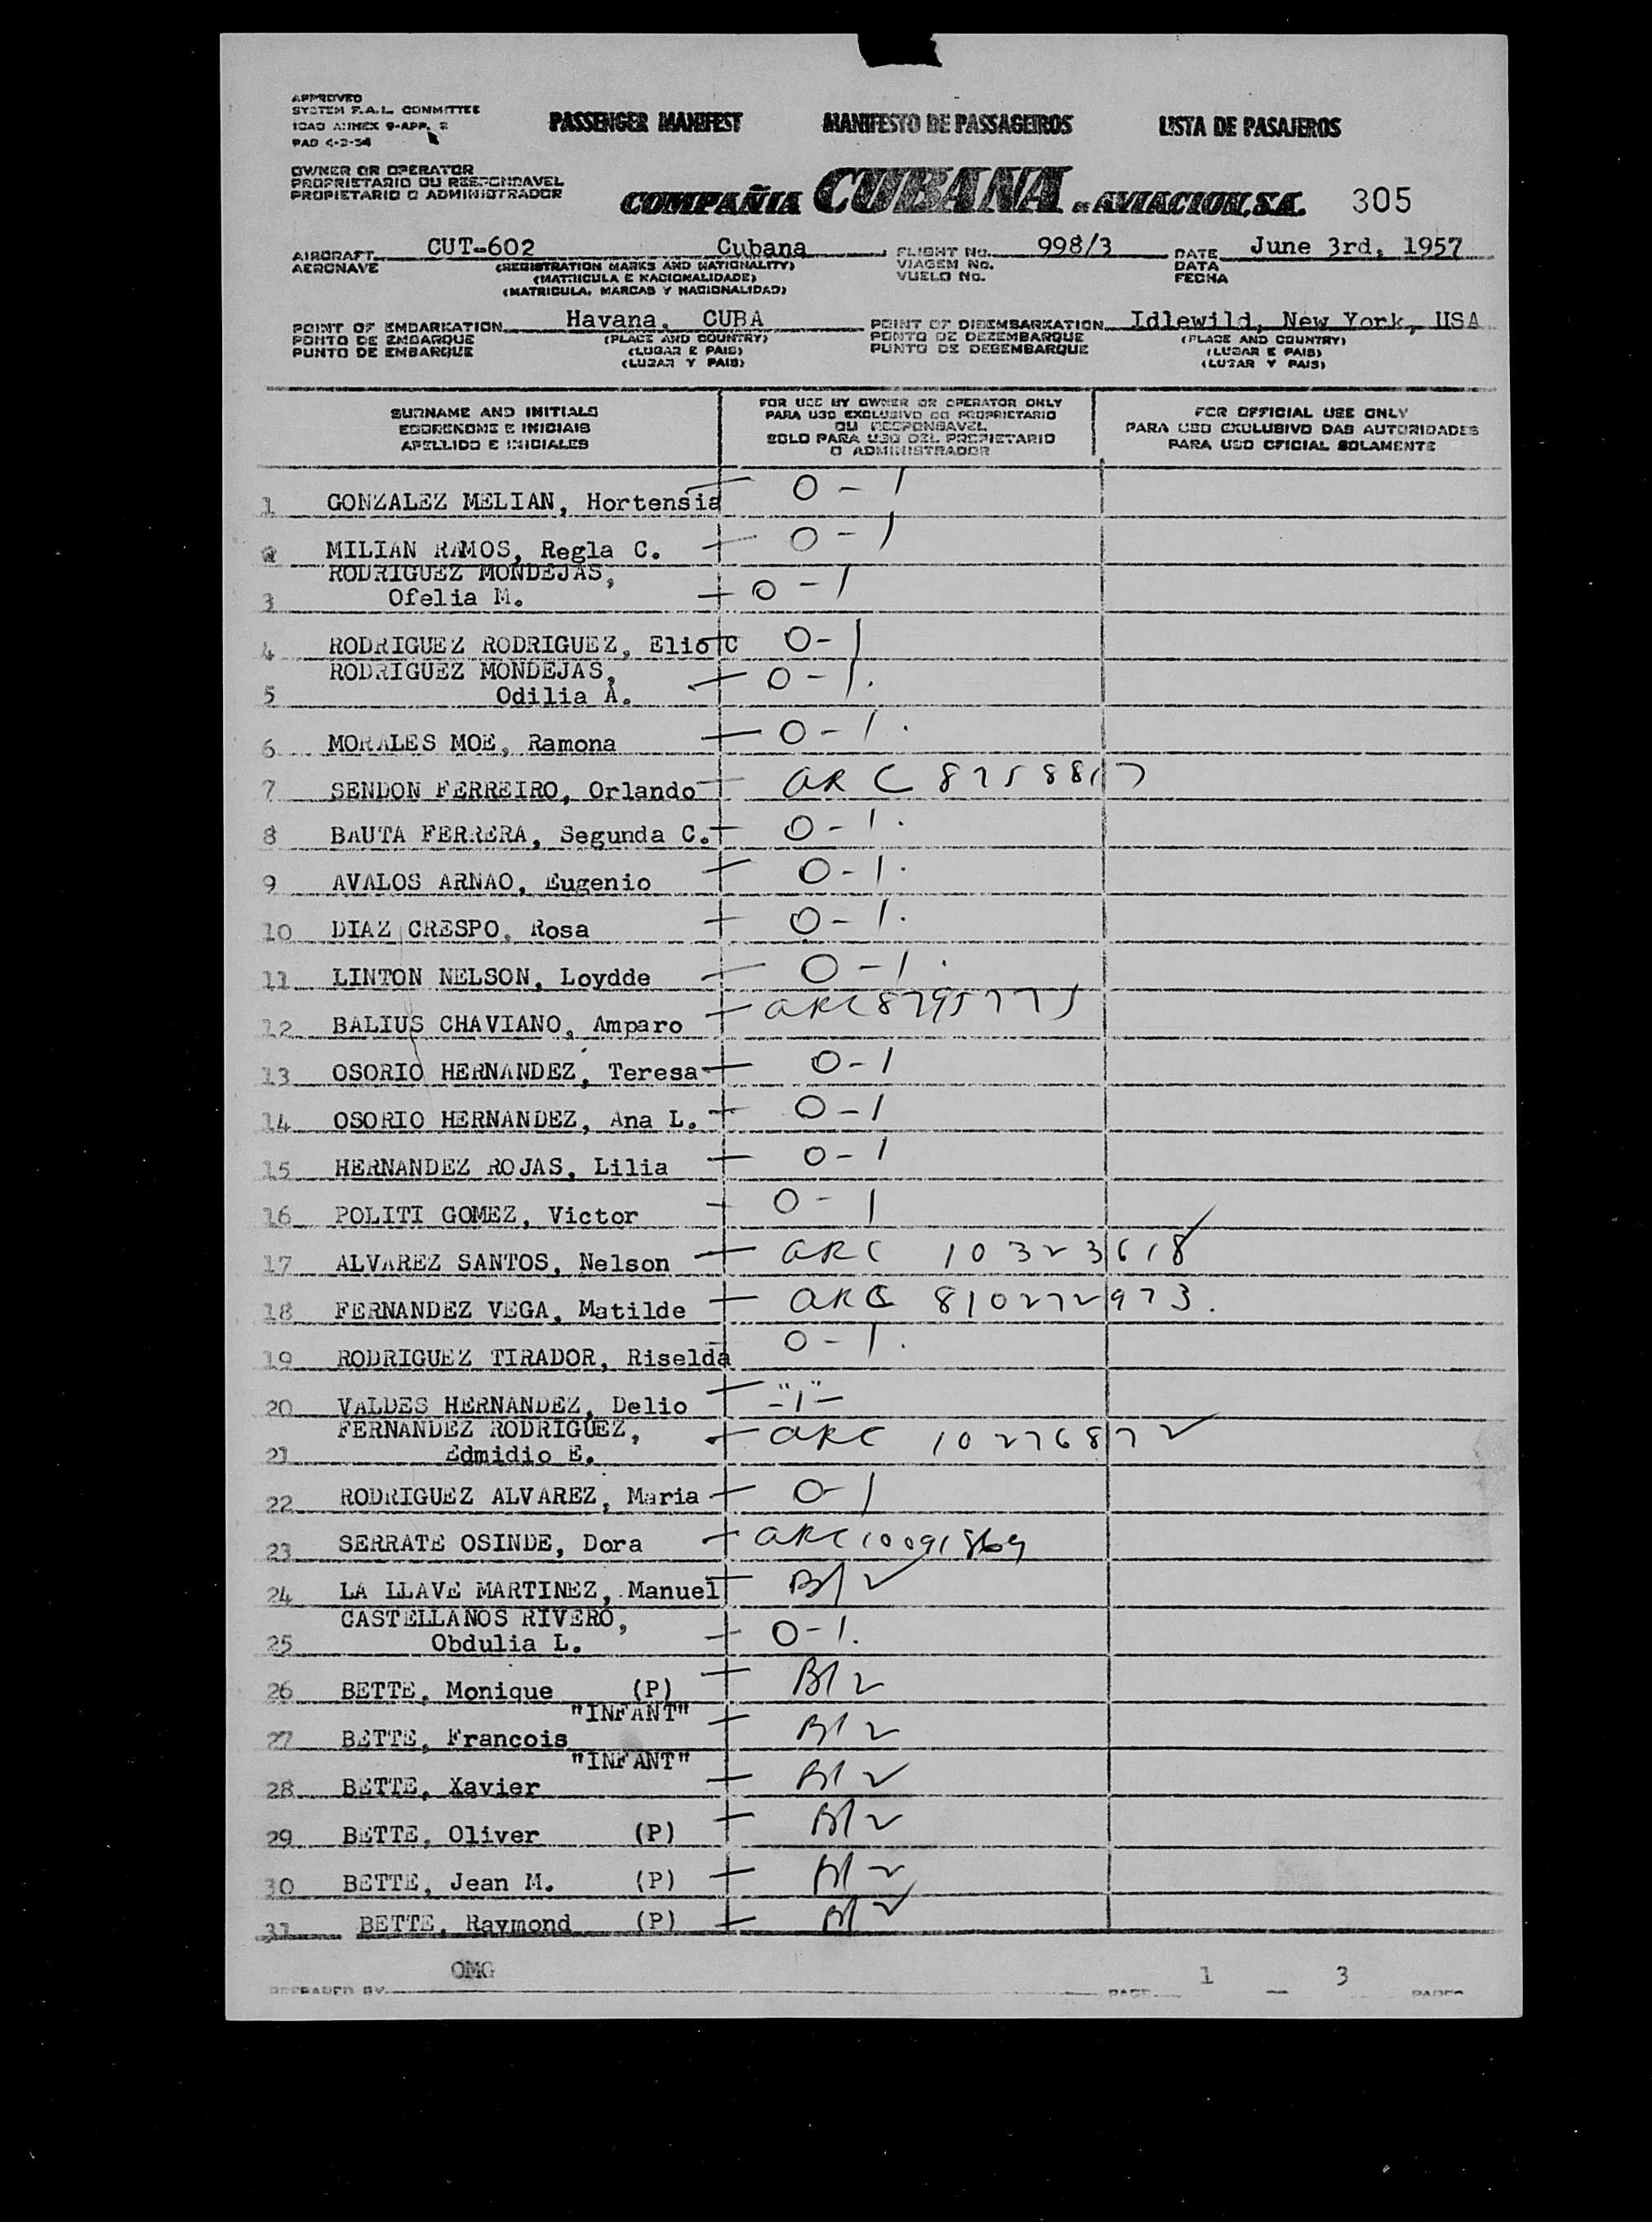 APPROVED
SYSTEM F.A.L. COMMITTEE
ICAO ANNEX 9-APP. 2
PAD 4-2-54
PASSENGER MANIFEST MANIFESTO DE PASSAGEIROS LISTA DE PASAJEROS
OWNER OR OPERATOR
PROPRIETARIO OU RESPONDAVEL
PROPIETARIO O ADMINISTRADOR
COMPAÑIA CUBANA DE AVIACION, S.A. 305
AIRCRAFT CUT-602 Cubana FLIGHT No. 998/3 DATE June 3rd, 1957
AERONAVE (REGISTRATION MARKS AND NATIONALITY) VIAGEM No. DATA
(MATRICULA E NACIONALIDADE) VUELO No. FECHA
(MATRICULA, MARCAS Y NACIONALIDAD)
POINT OF EMBARKATION Havana, CUBA POINT OF DISEMBARKATION Idlewild, New York, USA
PONTO DE EMBARQUE (PLACE AND COUNTRY) PONTO DE DEZEMBARQUE (PLACE AND COUNTRY)
PUNTO DE EMBARQUE (LUGAR E PAIS) PUNTO DE DESEMBARQUE (LUGAR E PAIS)
(LUGAR Y PAIS) (LUGAR Y PAIS)
SURNAME AND INITIALS FOR USE BY OWNER OR OPERATOR ONLY FOR OFFICIAL USE ONLY
SOBRENOME E INICIAIS PARA USO EXCLUSIVO DO PROPRIETARIO PARA USO EXCLUSIVO DAS AUTORIDADES
APELLIDO E INICIALES OU RESPONSAVEL PARA USO OFICIAL SOLAMENTE
SOLO PARA USO DEL PROPIETARIO
O ADMINISTRADOR
1 GONZALEZ MELIAN, Hortensia O-1
2 MILIAN RAMOS, Regla C. O-1
RODRIGUEZ MONDEJAS,
3 Ofelia M. O-1
4 RODRIGUEZ RODRIGUEZ, Elio C O-1
RODRIGUEZ MONDEJAS,
5 Odilia A. O-1.
6 MORALES MOE, Ramona O-1.
7 SENDON FERREIRO, Orlando ARC
8 BAUTA FERRERA, Segunda C. O-1.
9 AVALOS ARNAO, Eugenio O-1.
10 DIAZ CRESPO, Rosa O-1.
11 LINTON NELSON, Loydde O-1.
12 BALIUS CHAVIANO, Amparo ARC 8795775
13 OSORIO HERNANDEZ, Teresa O-1
14 OSORIO HERNANDEZ, Ana L. O-1
15 HERNANDEZ ROJAS, Lilia O-1
16 POLITI GOMEZ, Victor O-1
17 ALVAREZ SANTOS, Nelson ARC 10323618
18 FERNANDEZ VEGA, Matilde ARC 810272973.
19 RODRIGUEZ TIRADOR, Riselda O-1.
20 VALDES HERNANDEZ, Delio -"1"-
FERNANDEZ RODRIGUEZ,
21 Edmidio E. ARC 10276872
22 RODRIGUEZ ALVAREZ, Maria O-1
23 SERRATE OSINDE, Dora ARC 10091869
24 LA LLAVE MARTINEZ, Manuel B/2
CASTELLANOS RIVERO,
25 Obdulia L. O-1.
26 BETTE, Monique (P) B/2
"INFANT"
27 BETTE, Francois B/2
"INFANT"
28 BETTE, Xavier B/2
29 BETTE, Oliver (P) B/2
30 BETTE, Jean M. (P) B/2
31 BETTE, Raymond (P) B/2
OMG
PREPARED BY PAGE 1 3 PAGES